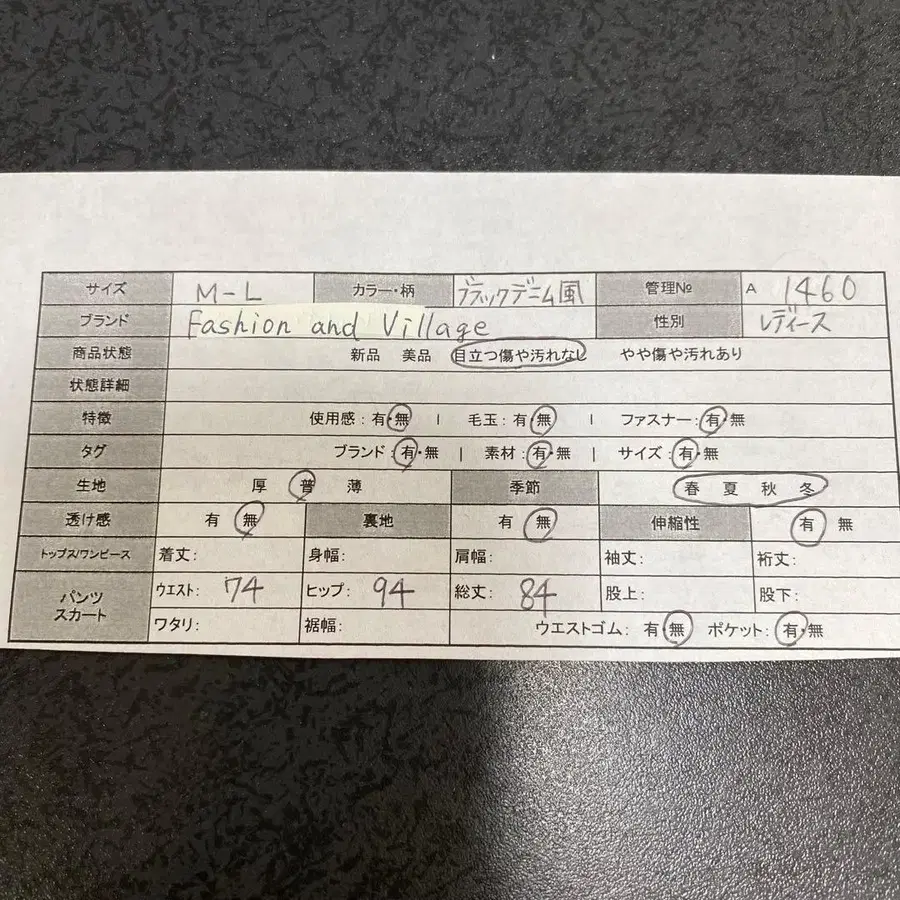 サイズ M-L カラー・柄 ブラックデニム風 管理№ A 1460
ブランド Fashion and Village 性別 レディース
商品状態 新品 美品 目立つ傷や汚れなし やや傷や汚れあり
状態詳細
特徴 使用感:有・無 | 毛玉:有・無 | ファスナー:有・無
タグ ブランド:有・無 | 素材:有・無 | サイズ:有・無
生地 厚 普 薄 季節 春 夏 秋 冬
透け感 有 無 裏地 有 無 伸縮性 有 無
トップス/ワンピース 着丈: 身幅: 肩幅: 袖丈: 裄丈:
パンツ
スカート
ウエスト: 74 ヒップ: 94 総丈: 84 股上: 股下:
ワタリ: 裾幅: ウエストゴム: 有・無 ポケット:有・無